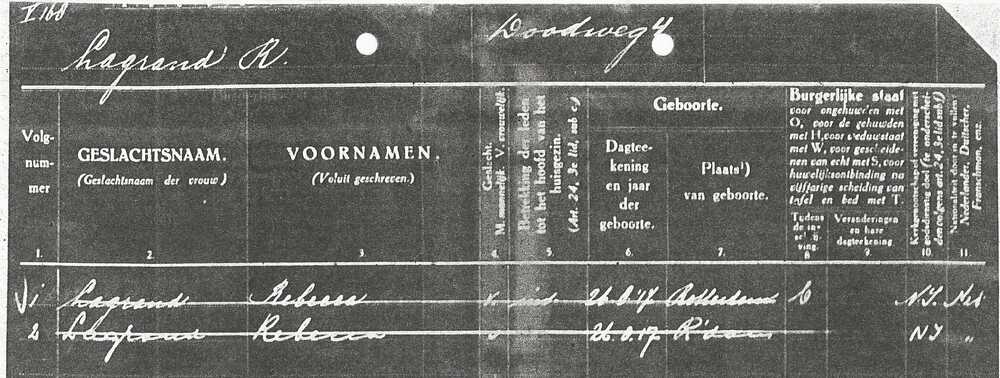 I 160
Lagrand R. Doodweg 4
Volg-
num-
mer
GESLACHTSNAAM.
(Geslachtsnaam der vrouw)
VOORNAMEN.
(Voluit geschreven.)
Geslacht.
M. mannelijk. V. vrouwelijk.
Betrekking der leden
tot het hoofd van het
huisgezin.
(Art. 24, 3e lid, sub c)
Geboorte.
Dagtee-
kening
en jaar
der
geboorte.
Plaats1)
van geboorte.
Burgerlijke staat
voor ongehuwden met
O, voor de gehuwden
met H, voor weduwstaat
met W, voor gescheide-
nen van echt met S, voor
huwelijksontbinding na
vijfjarige scheiding van
tafel en bed met T.
Tijdens
de in-
schrij-
ving.
Veranderingen
en hare
dagteekening.
Kerkgenootschap of vereeniging met
godsdienstig doel (te onderschei-
den volgens art. 24, 3e lid sub f)
Nationaliteit door in te vullen
Nederlander, Duitscher,
Franschman, enz.
1. 2. 3. 4. 5. 6. 7. 8 9. 10. 11.
1 Lagrand Rebecca v. 26.8.17 Rotterdam N.I. Ned
2 Lagrand Rebecca v 26.8.17 R'dam NI "